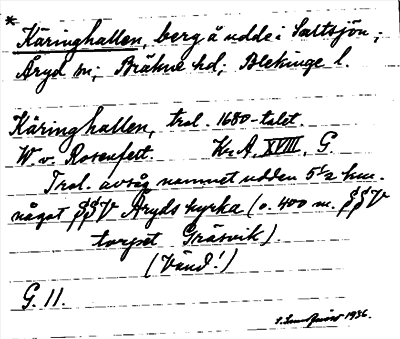 * Käringhallen, berg å udde i Saltsjön;
Åryd sn; Bräkne hd; Blekinge l.
Käringhallen, trol. 1680-talet.
W. v. Rosenfelt. Kr. A. XVIII, G.
Trol. avsåg namnet udden 5½ km.
något SSV Åryds kyrka (o. 400 m. SSV
torpet Gräsvik)
(Vänd!)
G. 11.
1936.